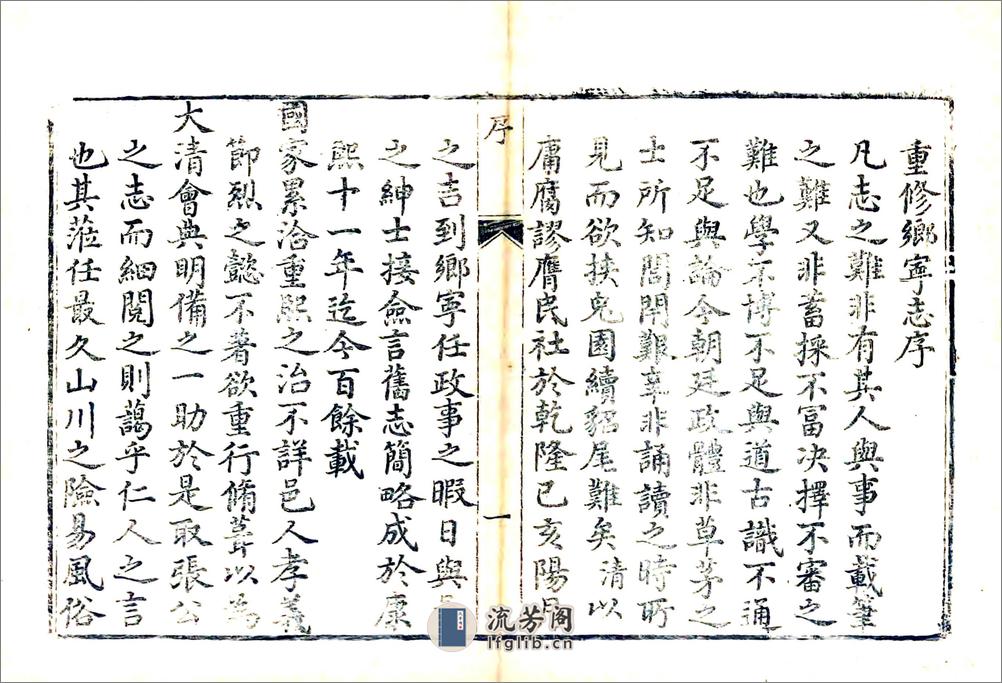 重修鄉寧志序
凡志之難非有其人與事而載筆
之難又非蓄採不冨决擇不審之
難也學不博不足與道古識不通
不足與論今朝廷政體非草茅之
士所知閭閈艱辛非誦讀之時所
見而欲挟兎園續貂尾難矣清以
庸腐謬膺民社於乾隆己亥陽月
序
一
之吉到鄉寧任政事之暇日與邑
之紳士接僉言舊志簡略成於康
熙十一年迄今百餘載
國家累洽重熙之治不詳邑人孝義
節烈之懿不著欲重行脩葺以爲
大清會典明備之一助於是取張公
之志而細閱之則藹乎仁人之言
也其蒞任最久山川之險易風俗
流芳阁
lfglib.cn